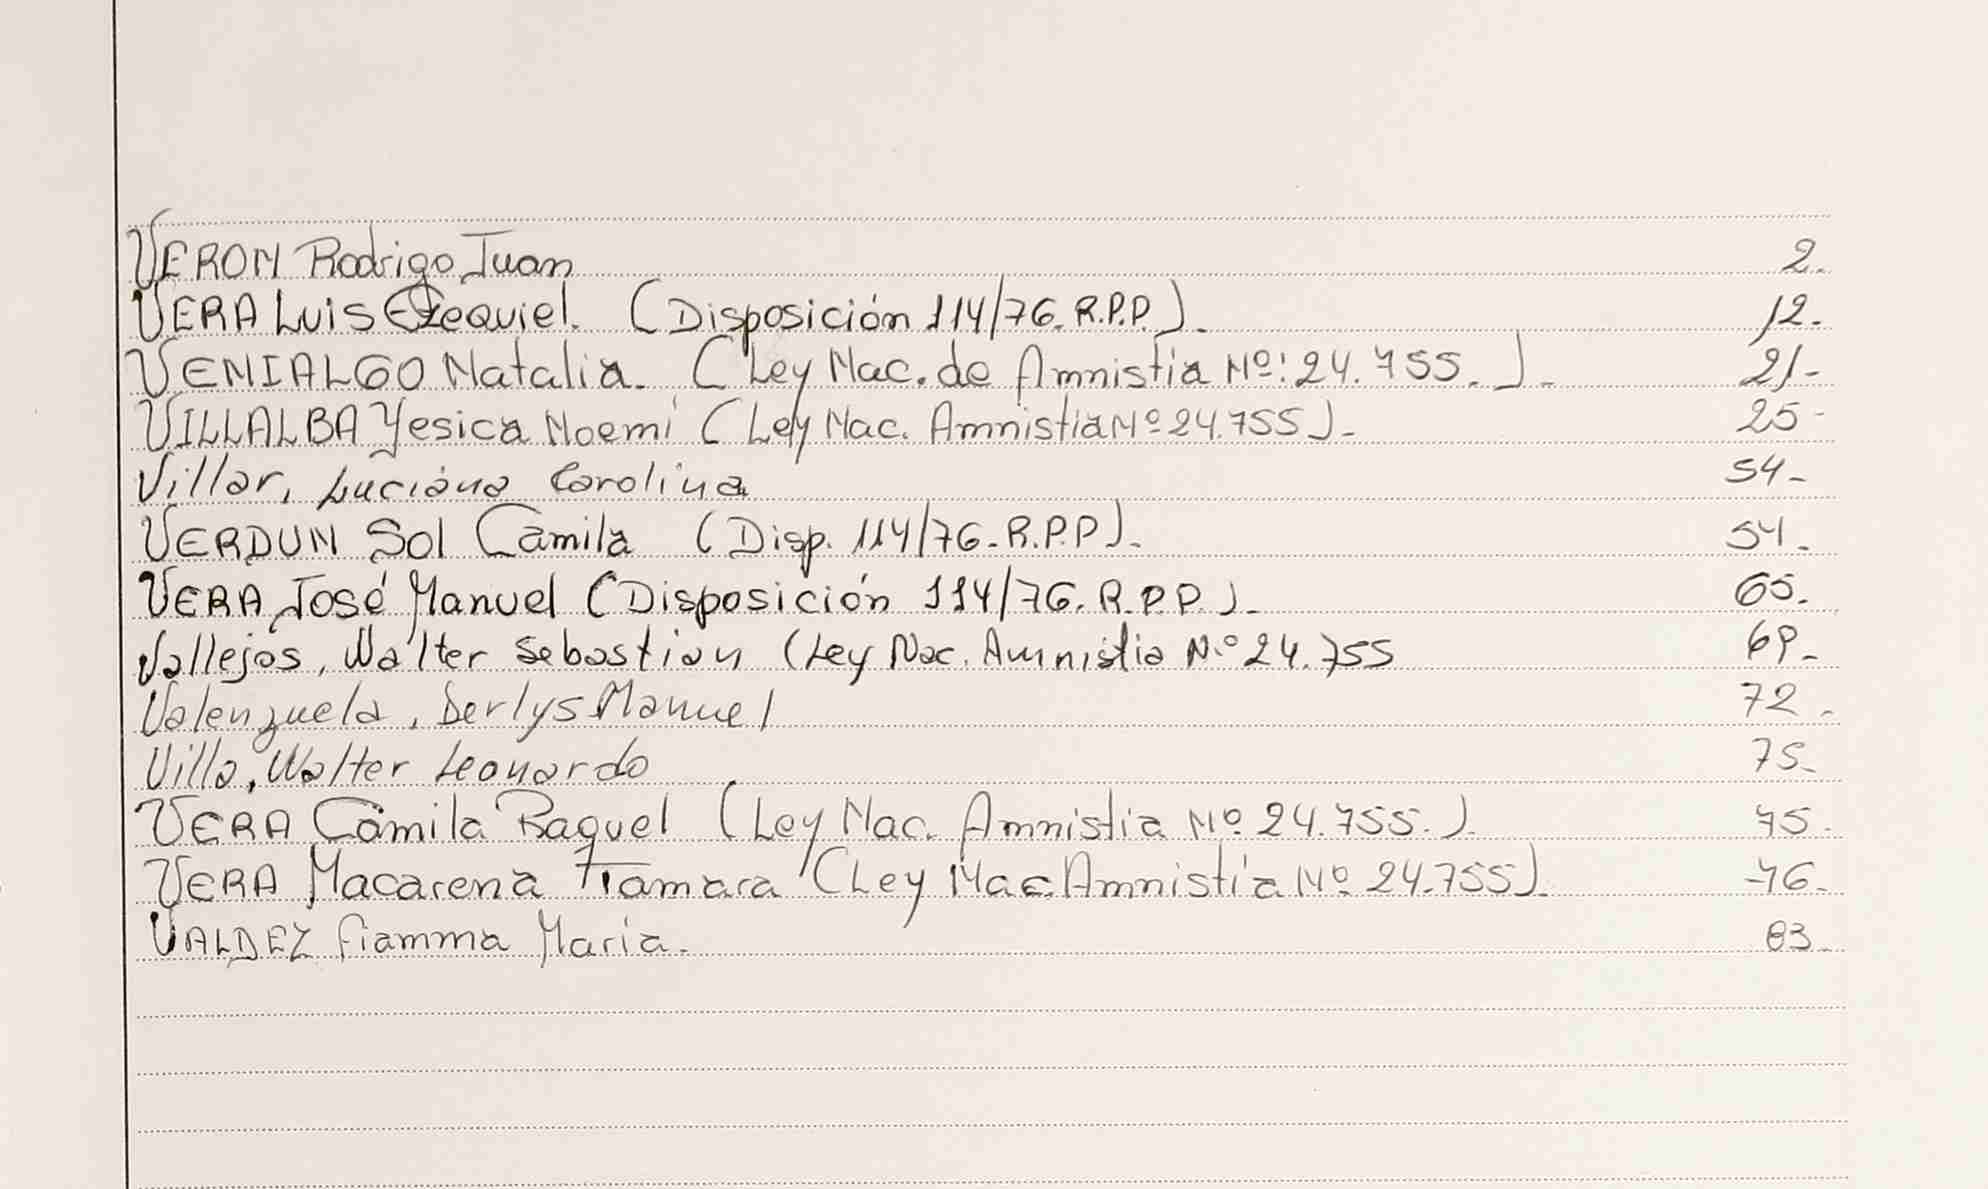 VERON Rodrigo Juan 2.
VERA Luis Ezequiel. (Disposición 114/76. R.P.P.). 12.
VENIALGO Natalia. (Ley Nac. de Amnistia Nº: 24.755.). 21-
VILLALBA Yesica Noemí (Ley Nac. Amnistia Nº 24.755)- 25-
Villar, Luciana Carolina 54-
VERDUN Sol Camila (Disp. 114/76-R.P.P). 54.
VERA José Manuel (Disposición 114/76. R.P.P.)- 65.
Vallejos, Walter Sebastian (Ley Nac. Amnistia N.º 24.755 69-
Valenzuela, Derlys Manuel 72.
Villa, Walter Leonardo 75-
VERA Camila Raquel (Ley Nac. Amnistia Nº 24.755.). 75.
VERA Macarena Tamara (Ley Nac. Amnistia Nº 24.755). 76-
VALDEZ fiamma Maria. 83-